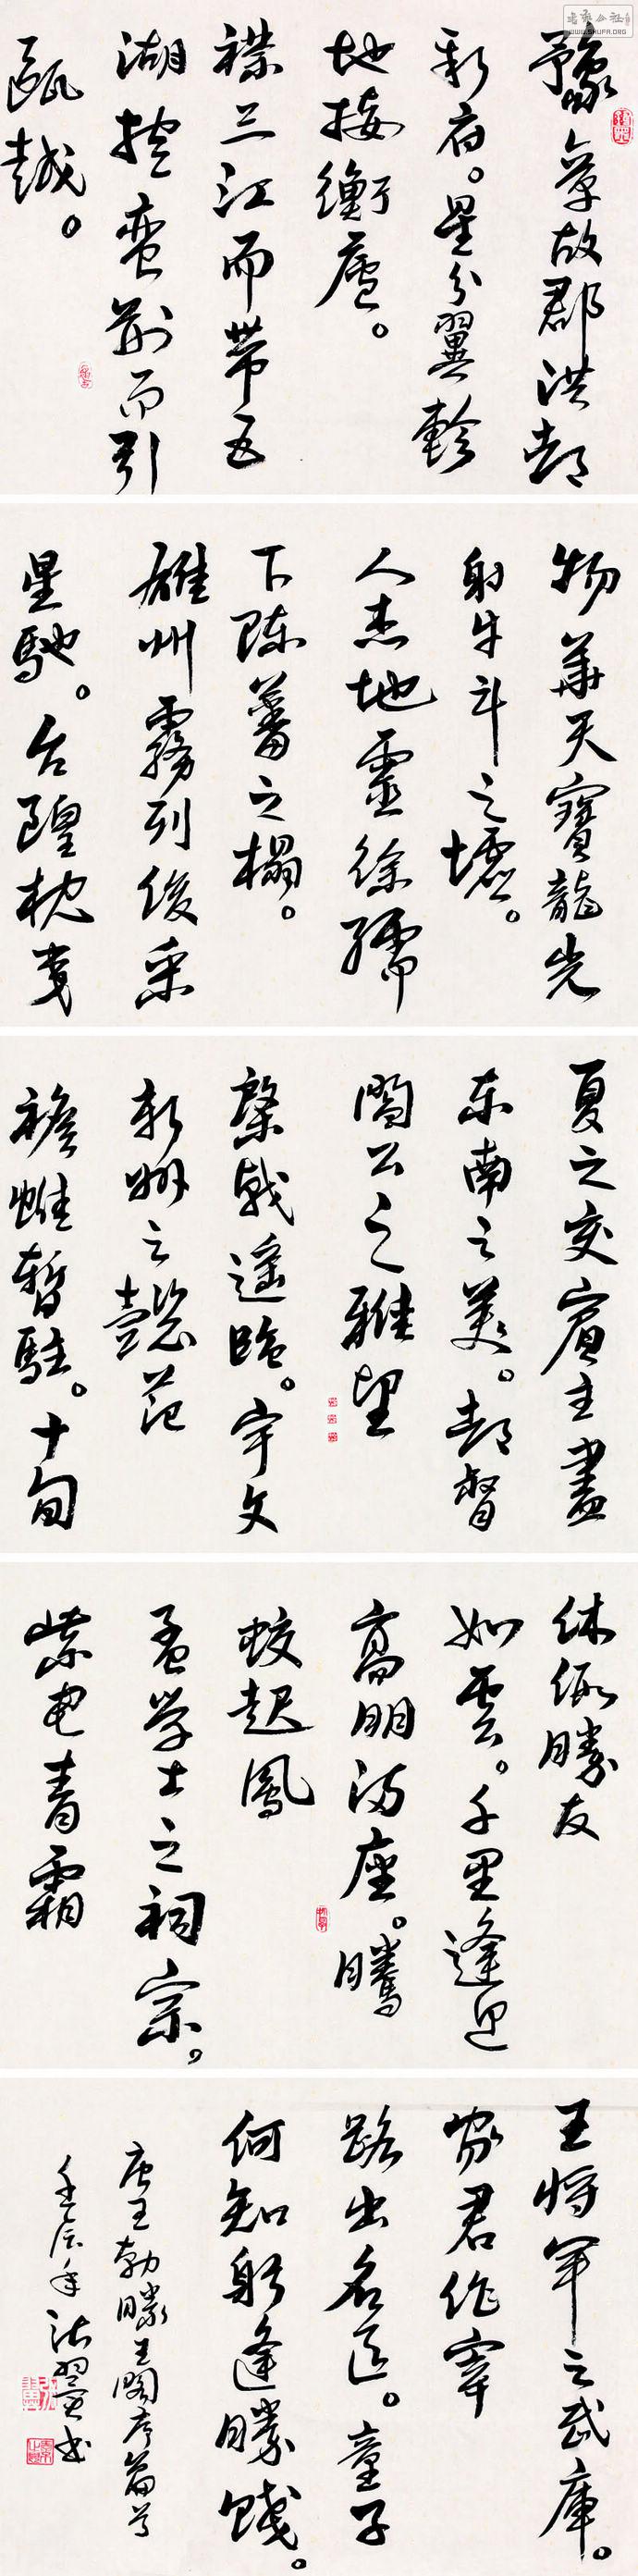 书法公社
WWW.SHUFA.ORG
豫章故郡洪都
新府。星分翼軫
地接衡廬。
襟三江而带五
湖控蛮荆而引
甌越。
物華天寶龍光
射牛斗之墟。
人杰地靈徐孺
下陈蕃之榻。
雄州霧列俊采
星馳。台隍枕夷
夏之交賓主盡
东南之美。都督
閻公之雅望
棨戟遥臨。宇文
新州之懿范
襜帷暫駐。十旬
休假勝友
如雲。千里逢迎
高朋满座。騰
蛟起鳳
孟学士之词宗。
紫电青霜
王将军之武庫。
家君作宰
路出名區。童子
何知躬逢勝餞。
唐王勃滕王閣序篇首
壬辰年翼書